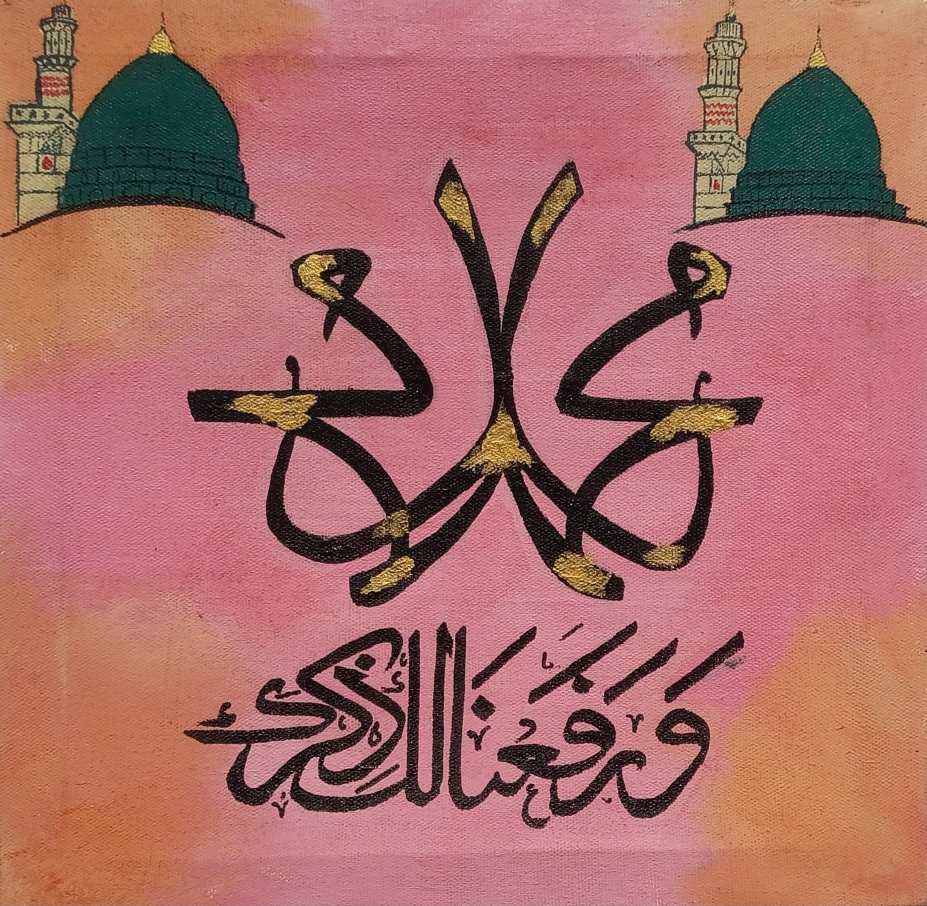 محمد
وَرَفَعْنَا لَكَ ذِكْرَكَ